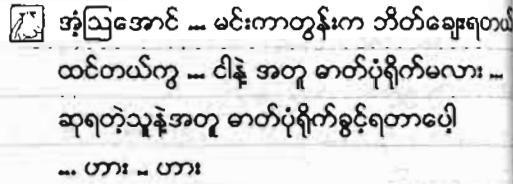 အံ့ဩအောင် ... မင်းကာတွန်းက ဘိတ်ချေးရတယ်
ထင်တယ်ကွ ... ငါနဲ့ အတူ ဓာတ်ပုံရိုက်မလား ...
ဆုရတဲ့သူနဲ့အတူ ဓာတ်ပုံရိုက်ခွင့်ရတာပေါ့
... ဟား ... ဟား